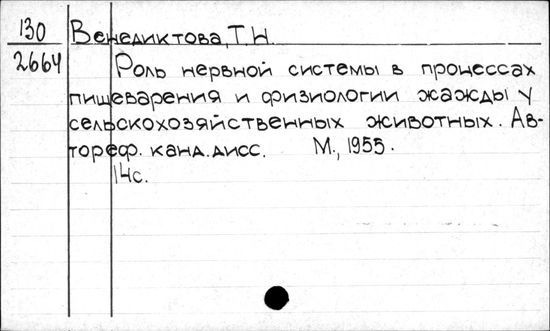 130 Венедиктова, Т.Н.
2664 Роль нервной системы в процессах
пищеварения и физиологии жажды у
сельскохозяйственных животных. Ав-
тореф. канд. дисс. М., 1955.
14с.